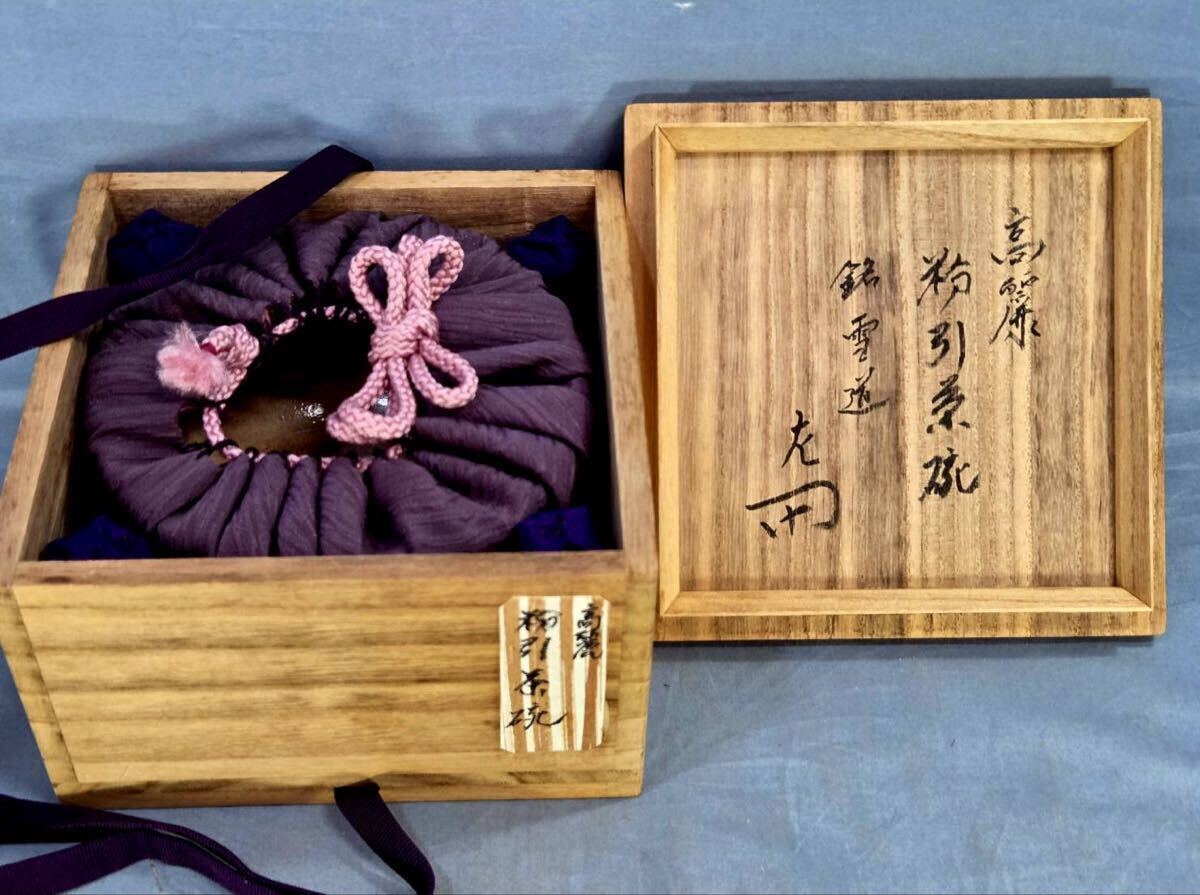 高麗
粉引茶碗
銘 雪道
高麗
粉引茶碗